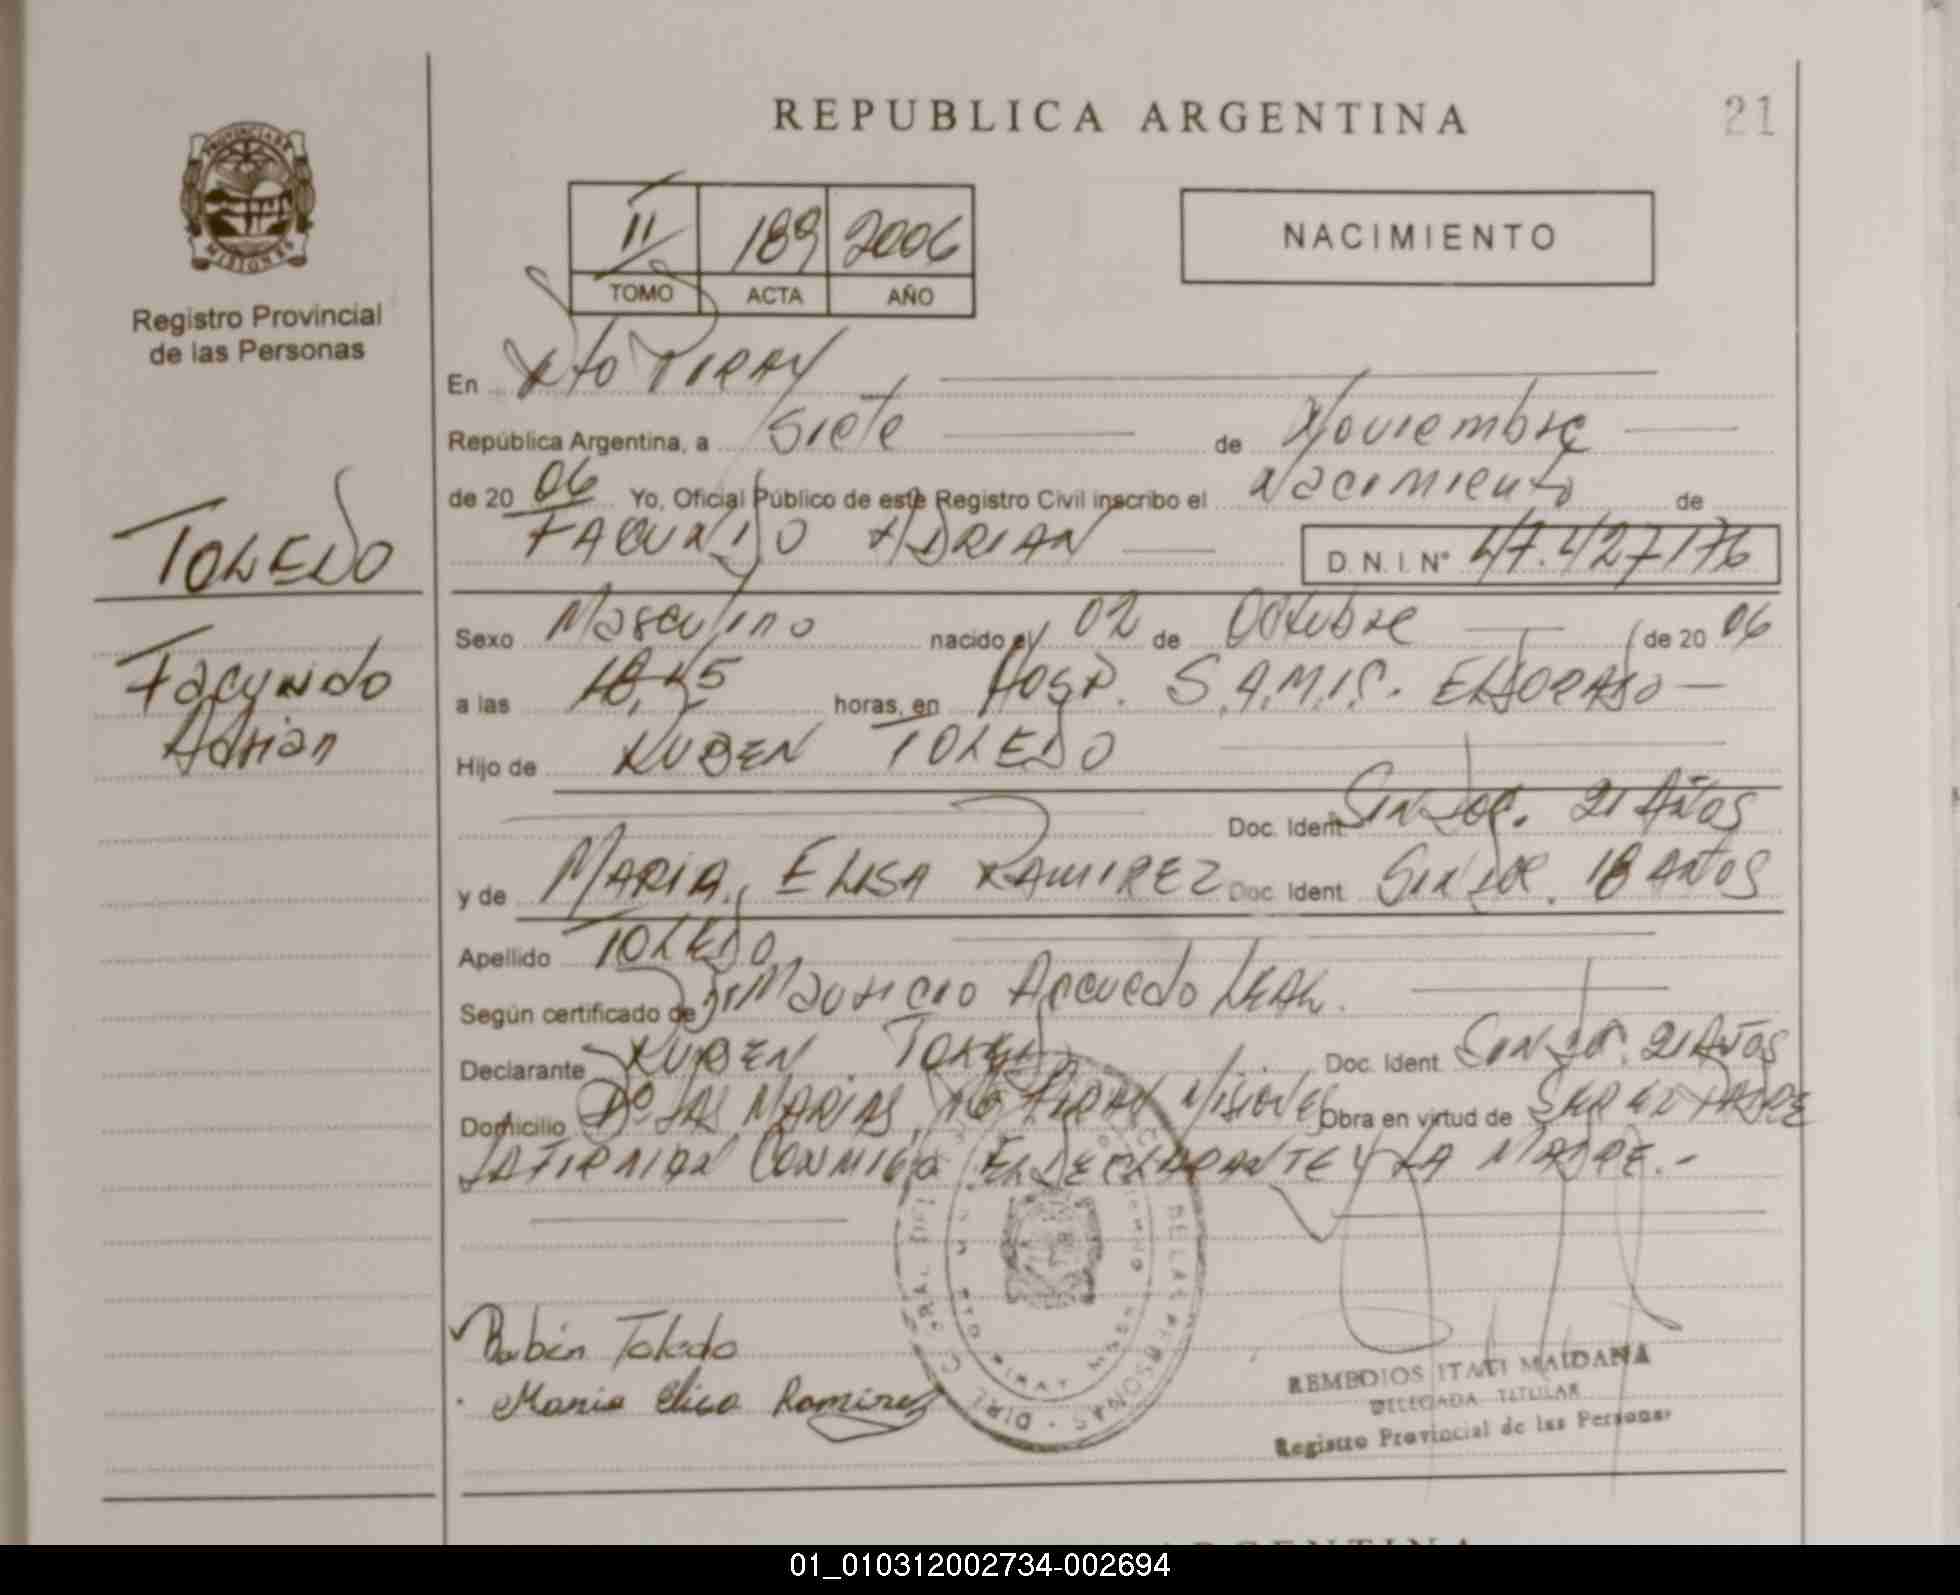 REPUBLICA ARGENTINA
21
PROVINCIA DE MISIONES
Registro Provincial
de las Personas
II 189 2006
TOMO ACTA AÑO
NACIMIENTO
En Pto PIRAY
República Argentina, a Siete de Noviembre
de 2006 Yo, Oficial Público de este Registro Civil inscribo el Nacimiento de
FACUNDO ADRIAN D.N.I. Nº 47.427176
TOLEDO
Facundo
Adrian
Sexo Masculino nacido el 02 de Octubre de 2006
a las 18,45 horas, en HOSP. S.A.M.I.C. ELDORADO
Hijo de RUBEN TOLEDO
Doc. Ident Sin Doc. 21 AÑOS
y de MARIA, ELISA RAMIREZ Doc. Ident. Sin Doc. 18 AÑOS
Apellido TOLEDO
Según certificado de Dr Mauricio Acevedo LEAL.
Declarante RUBEN TOLEDO Doc. Ident Sin Doc. 21 AÑOS
Domicilio Bº LAS MARIAS, Pto PIRAY MISIONES Obra en virtud de SER EL PADRE
LA FIRMAN CONMIGO EL DECLARANTE Y LA MADRE.-
Rubén Toledo
Maria Elisa Ramirez
DE LAS PERSONAS
PTO PIRAY
REMEDIOS ITATI MAIDANA
DELEGADA TITULAR
Registro Provincial de las Personas
ARGENTINA
01_010312002734-002694